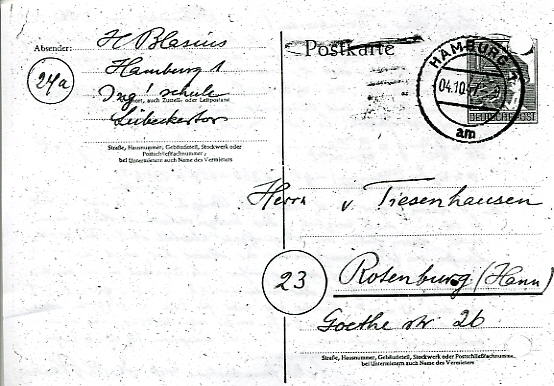 Absender:
H Blasius
Hamburg 1
24a
Ing' schule
Wohnort, auch Zustell- oder Leitpostamt
Lübeckertor
Straße, Hausnummer, Gebäudeteil, Stockwerk oder
Postschließfachnummer,
bei Untermietern auch Name des Vermieters
Postkarte
HAMBURG 1
04.10.47
am
DEUTSCHE POST
Herrn v. Tiesenhausen
23 Rotenburg (Hann)
Goethe str 26
Straße, Hausnummer, Gebäudeteil, Stockwerk oder Postschließfachnummer,
bei Untermietern auch Name des Vermieters